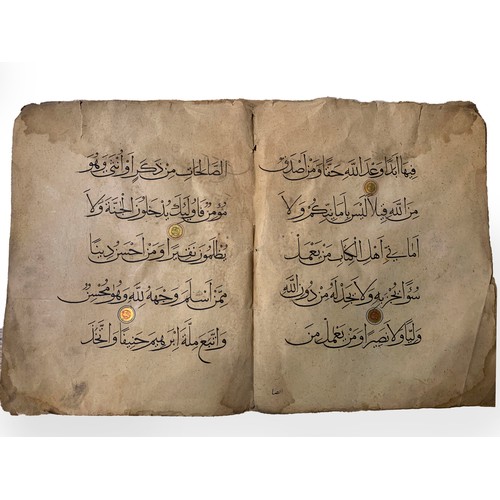 فيها ابدا وعد الله حقا ومن اصدق
من الله قيلا ليس بامانيكم ولا
اماني اهل الكتاب من يعمل
سوءا يجز به ولا يجد له من دون الله
وليا ولا نصيرا ومن يعمل من
الصالحات من ذكر او انثى وهو
مؤمن فاولئك يدخلون الجنة ولا
يظلمون نقيرا ومن احسن دينا
ممن اسلم وجهه لله وهو محسن
واتبع ملة ابرهيم حنيفا واتخذ